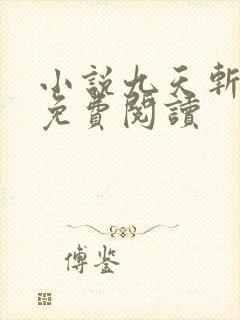 小説九天斬
免費閱讀
傅鉴